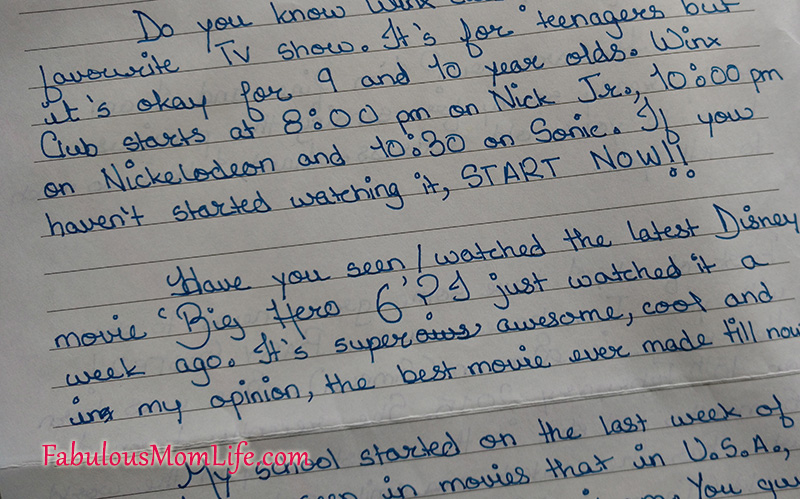 Do you know Winx
favourite TV show. It's for teenagers but
it's okay for 9 and 10 year olds. Winx
Club starts at 8:00 pm on Nick Jr., 10:00 pm
on Nickelodeon and 10:30 on Sonic. If you
haven't started watching it, START NOW!!
Have you seen/watched the latest Disney
movie 'Big Hero 6'? I just watched it a
week ago. It's super awesome, cool and
in my opinion, the best movie ever made till now
My school started on the last week of
in movies that in U.S.A.,
You
FabulousMomLife.com